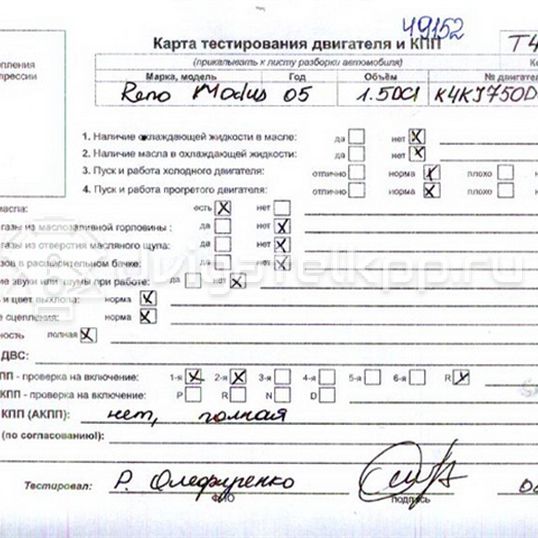 49152
Карта тестирования двигателя и КПП
(прикалывать к листу разборки автомобиля)
Т4
пления
прессии
Марка, модель Год Объём № двигател
Reno Modus 05 1.5DCI K4KJ750D
1. Наличие охлаждающей жидкости в масле: да нет X
2. Наличие масла в охлаждающей жидкости: да нет X
3. Пуск и работа холодного двигателя: отлично норма X плохо
4. Пуск и работа прогретого двигателя: отлично норма X плохо
масла: есть X нет
газы из маслозаливной горловины: да нет X
газы из отверстия масляного щупа: да нет X
зов в расширительном бачке: да нет X
ие звуки или шумы при работе: да нет X
ь и цвет выхлопа: норма X
е сцепления: норма X
ность полная X
ДВС:
ПП - проверка на включение: 1-я X 2-я X 3-я 4-я 5-я 6-я R X
КПП - проверка на включение: P R N D
КПП (АКПП): нет, полная
(по согласованию):
dvigatelkpp.ru
Тестировал: Р. Олефиренко
ФИО подпись